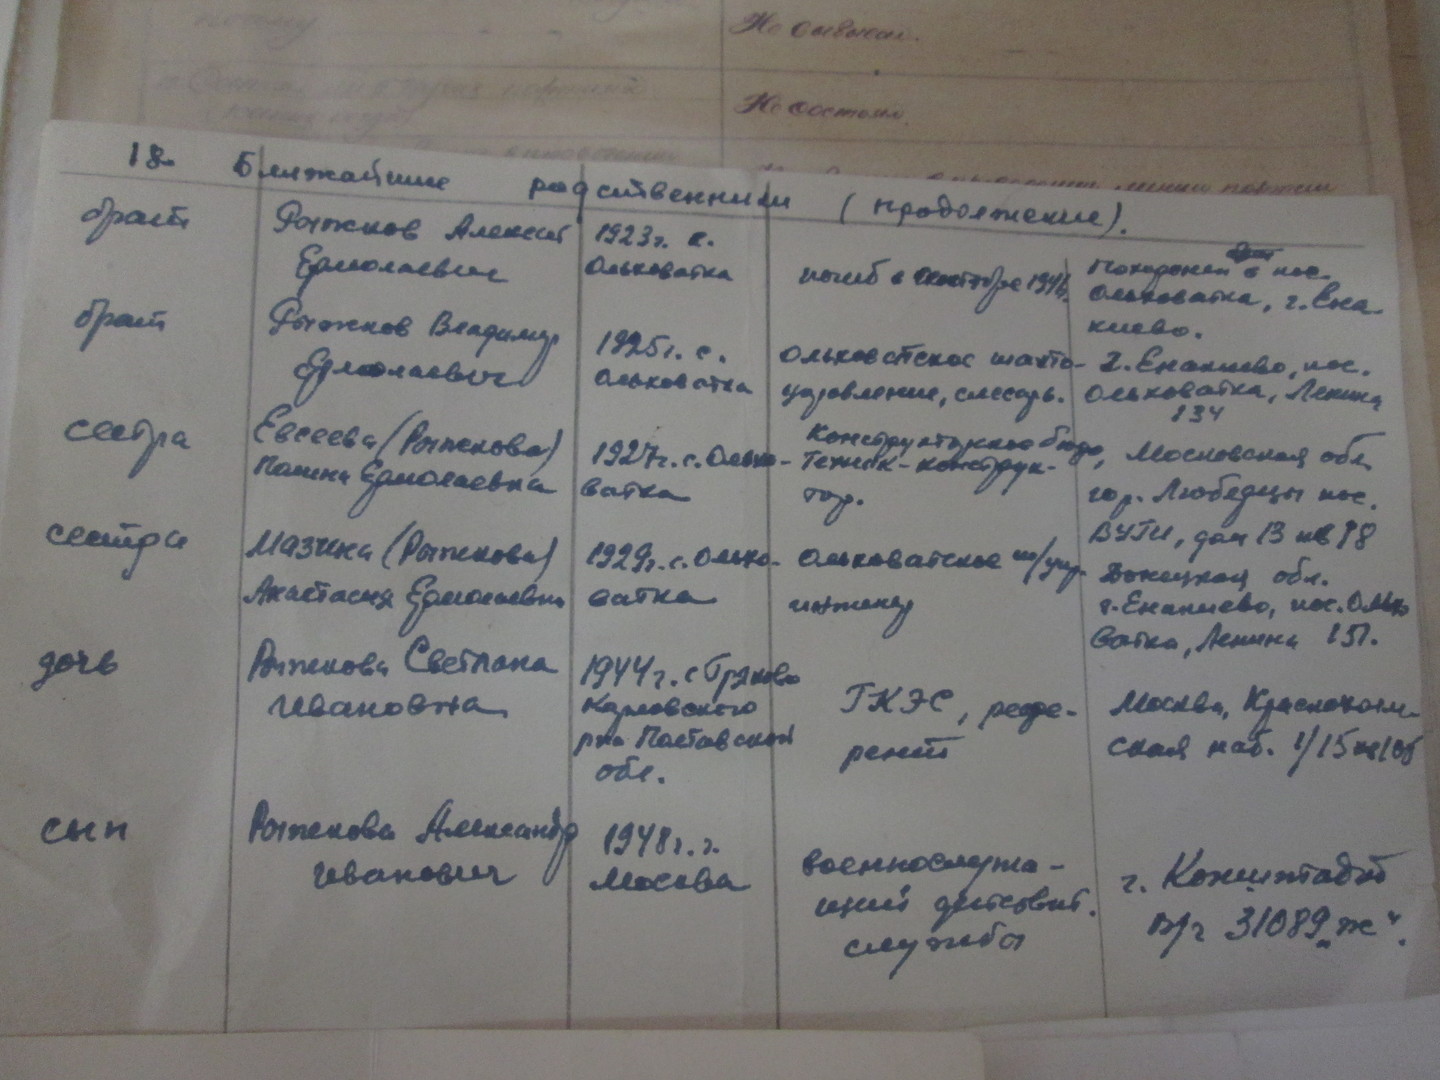 Не бывал.
Не состоял.
18. Ближайшие родственники (продолжение).
брат
Рыжков Алексей
Ермолаевич
1923 г. с.
Ольховатка
погиб в октябре
Похоронен в пос.
Ольховатка, г. Ена-
киево.
брат
Рыжков Владимир
Ермолаевич
1925 г. с.
Ольховатка
Ольховатское шахто-
управление, слесарь.
г. Енакиево, пос.
Ольховатка, Ленина
134
сестра
Евсеева (Рыжкова)
Ермолаевна
1927 г. с. Ольхо-
ватка
Конструкторское бюро,
Техник-конструк-
тор.
Московская обл.
гор. Люберцы пос.
ВУГИ, дом 13 кв 98
сестра
(Рыжкова)
Анастасия Ермолаевна
1929 г. с. Ольхо-
ватка
Ольховатское ш/упр.
инженер
Донецкая обл.
г. Енакиево, пос. Ольхо
ватка, Ленина 151.
дочь
Рыжкова Светлана
Ивановна
1944 г. с
Карловского
р-на Полтавской
обл.
ГКЭС, рефе-
рент
Москва, Краснохолм-
ская наб. 1/15
сын
Рыжкова Александр
Иванович
1948 г. г.
Москва
военнослужа-
щий действит.
службы
г. Кронштадт
в/ч 31089 „ж".